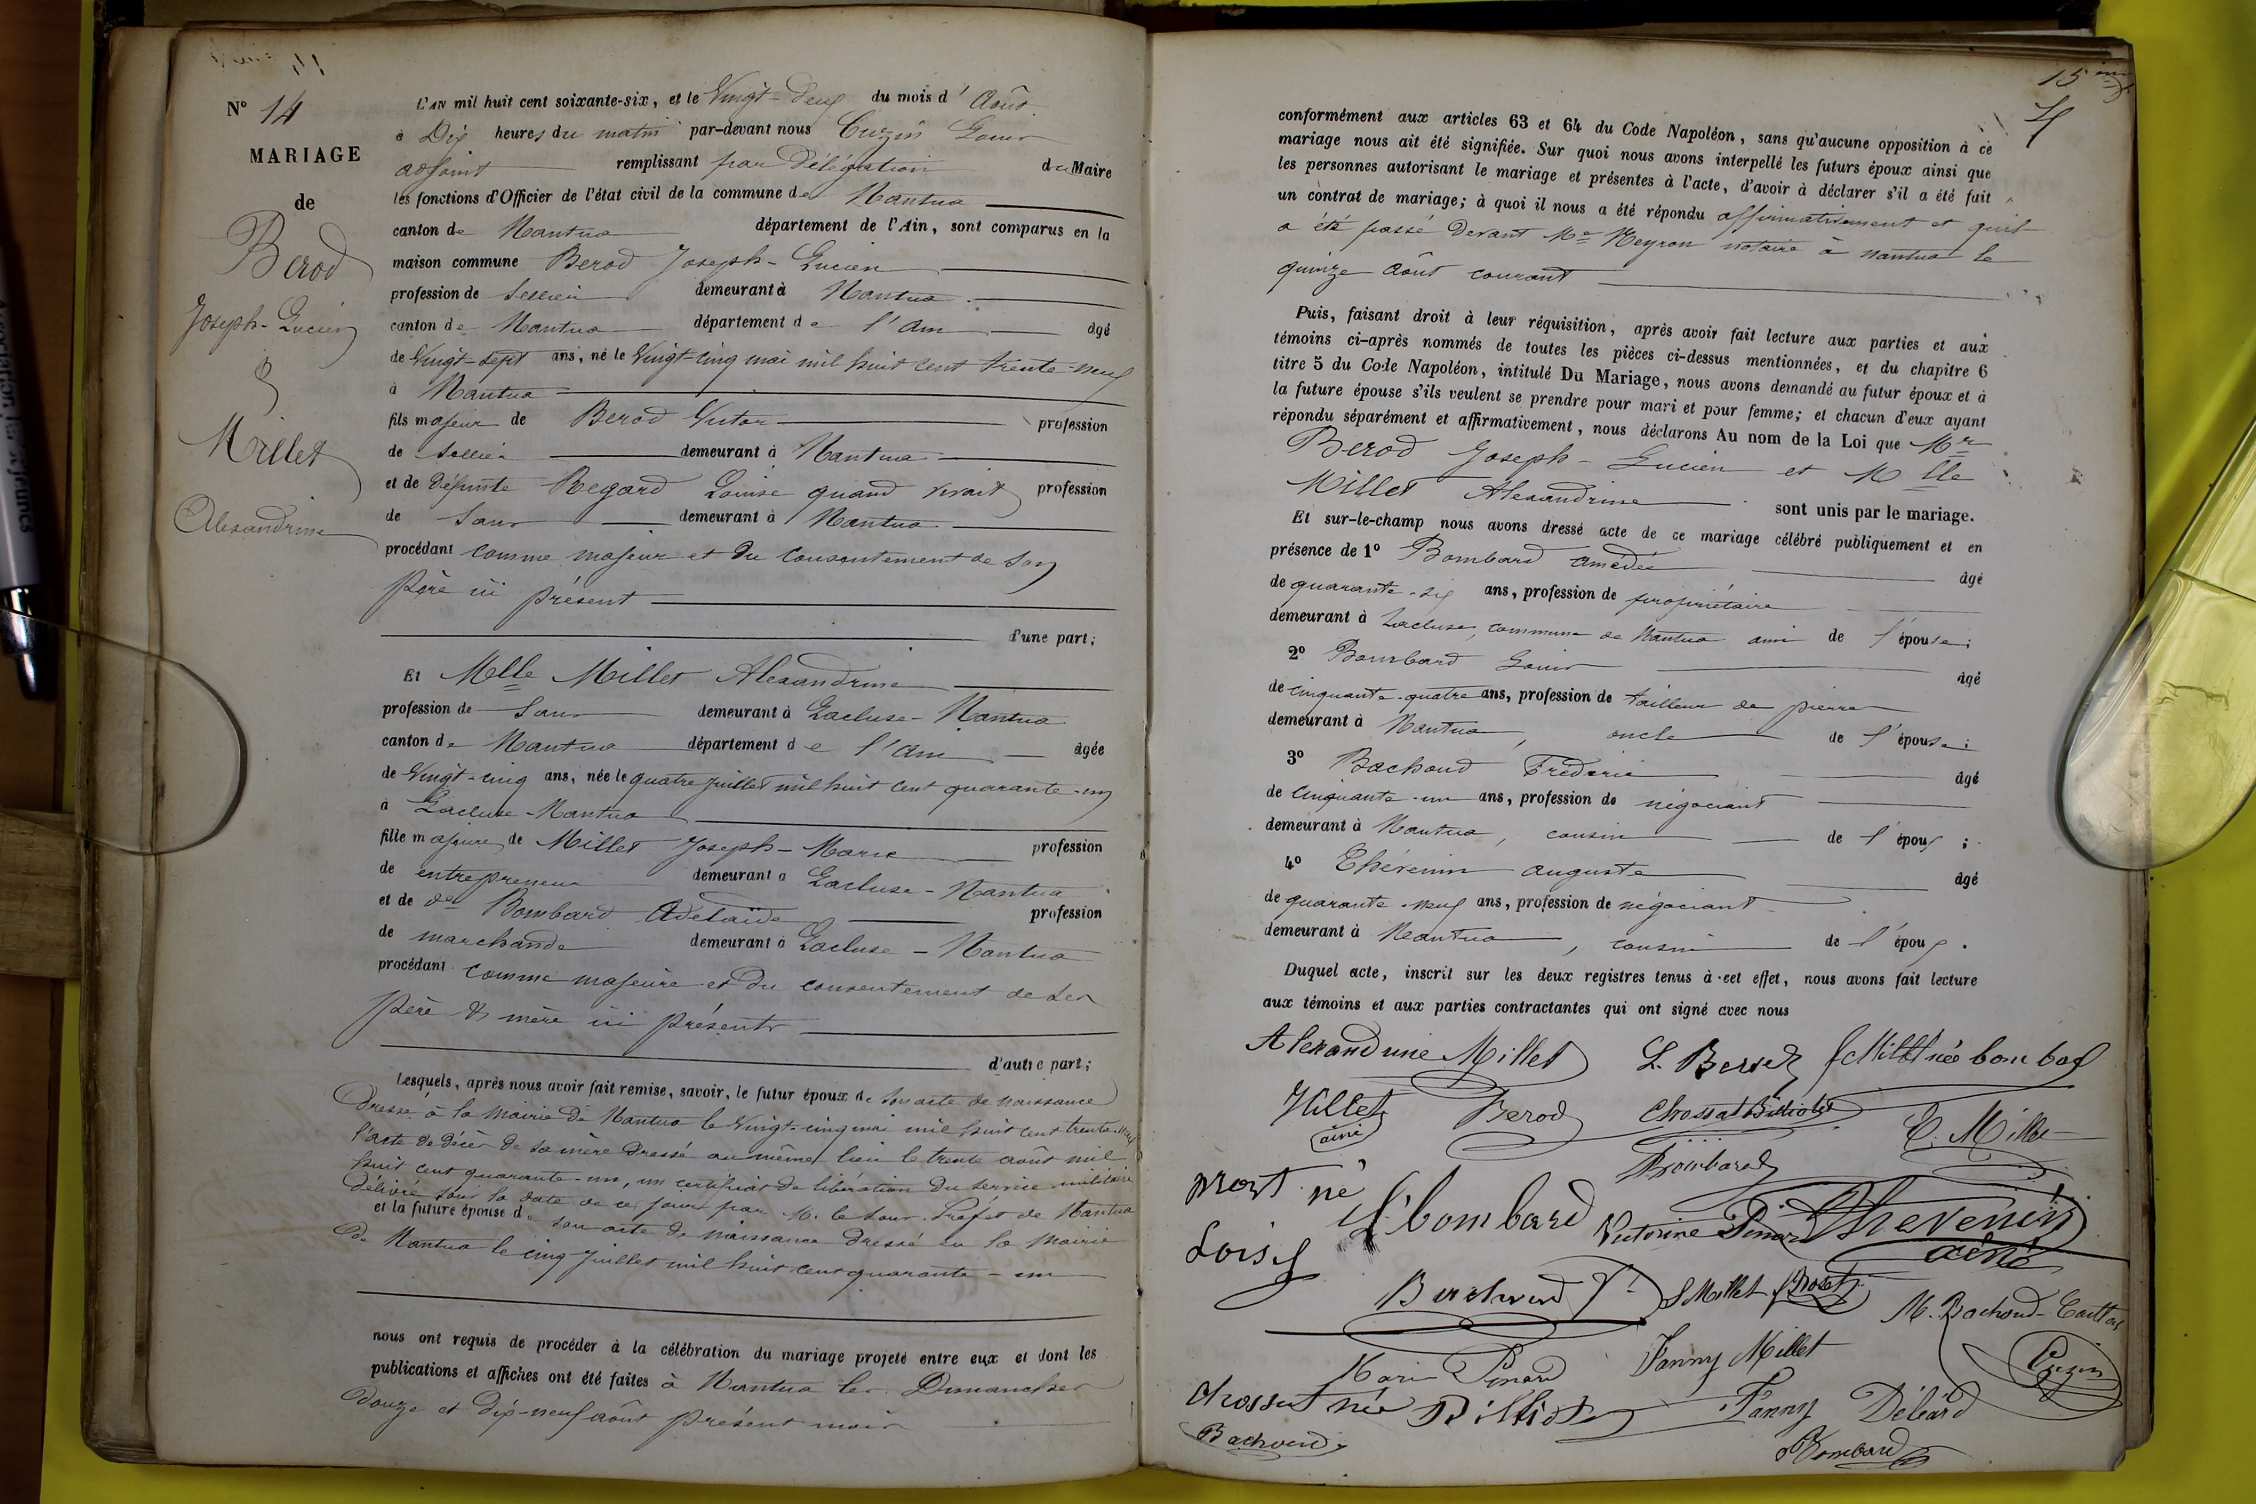 Nº 14
MARIAGE
de
Berod
Joseph-Lucien
&
Millet
Alexandrine
L'AN mil huit cent soixante-six, et le Vingt-deux du mois d'Août
à Dix heures du matin par-devant nous Cuzin Louis
adjoint remplissant par Délégation du Maire
les fonctions d'Officier de l'état civil de la commune de Nantua
canton de Nantua département de l'Ain, sont comparus en la
maison commune Berod Joseph-Lucien
profession de Sellier demeurant à Nantua
canton de Nantua département de l'Ain âgé
de Vingt-sept ans, né le Vingt-cinq mai mil huit cent trente-neuf
à Nantua
fils majeur de Berod Victor profession
de Sellier demeurant à Nantua
et de défunte Regard Louise quand vivait profession
de Sans demeurant à Nantua
procédant comme majeur et du consentement de son
père ici présent
d'une part;
Et Melle Millet Alexandrine
profession de Sans demeurant à Lacluse-Nantua
canton de Nantua département de l'Ain âgée
de Vingt-cinq ans, née le quatre juillet mil huit cent quarante-un
à Lacluse-Nantua
fille majeure de Millet Joseph-Marie profession
de entrepreneur demeurant à Lacluse-Nantua
et de de Bombard Adélaïde profession
de marchande demeurant à Lacluse-Nantua
procédant comme majeure et du consentement de ses
père & mère ici présents
d'autre part;
Lesquels, après nous avoir fait remise, savoir, le futur époux de son acte de naissance
dressé à la Mairie de Nantua le Vingt-cinq mai mil huit cent trente-neuf
l'acte de décès de sa mère dressé au même lieu le trente août mil
huit cent quarante-un, un certificat de libération du service militaire
délivré sous la date de ce jour par M. le Sous-Préfet de Nantua
et la future épouse de son acte de naissance dressé en la Mairie
de Nantua le cinq juillet mil huit cent quarante-un
nous ont requis de procéder à la célébration du mariage projeté entre eux et dont les
publications et affiches ont été faites à Nantua les Dimanches
douze et dix-neuf août présent mois
15
conformément aux articles 63 et 64 du Code Napoléon, sans qu'aucune opposition à ce
mariage nous ait été signifiée. Sur quoi nous avons interpellé les futurs époux ainsi que
les personnes autorisant le mariage et présentes à l'acte, d'avoir à déclarer s'il a été fait
un contrat de mariage; à quoi il nous a été répondu affirmativement et qu'il
a été passé devant Me Neyron notaire à Nantua le
quinze août courant
Puis, faisant droit à leur réquisition, après avoir fait lecture aux parties et aux
témoins ci-après nommés de toutes les pièces ci-dessus mentionnées, et du chapitre 6
titre 5 du Code Napoléon, intitulé Du Mariage, nous avons demandé au futur époux et à
la future épouse s'ils veulent se prendre pour mari et pour femme; et chacun d'eux ayant
répondu séparément et affirmativement, nous déclarons Au nom de la Loi que Mr
Berod Joseph-Lucien et Melle
Millet Alexandrine sont unis par le mariage.
Et sur-le-champ nous avons dressé acte de ce mariage célébré publiquement et en
présence de 1º Bombard Amédée âgé
de quarante-six ans, profession de propriétaire
demeurant à Lacluse, commune de Nantua ami de l'épouse;
2º Bombard Louis âgé
de cinquante-quatre ans, profession de tailleur de pierre
demeurant à Nantua, oncle de l'épouse;
3º Bachoud Fréderic âgé
de cinquante-un ans, profession de négociant
demeurant à Nantua, cousin de l'époux;
4º Thévenin Auguste âgé
de quarante-neuf ans, profession de négociant
demeurant à Nantua, cousin de l'époux.
Duquel acte, inscrit sur les deux registres tenus à cet effet, nous avons fait lecture
aux témoins et aux parties contractantes qui ont signé avec nous
Alexandrine Millet L. Berod Millet née bombard
Millet aîné Berod Chossat Billiotet Millet
Bombard
né
Loisy bombard Victorine Pinard Thevenin aîné
Bachoud S Millet M. Bachoud-
Marie Pinard Fanny Millet Cuzin
Chossat née Fanny Débard
Bachoud Bombard